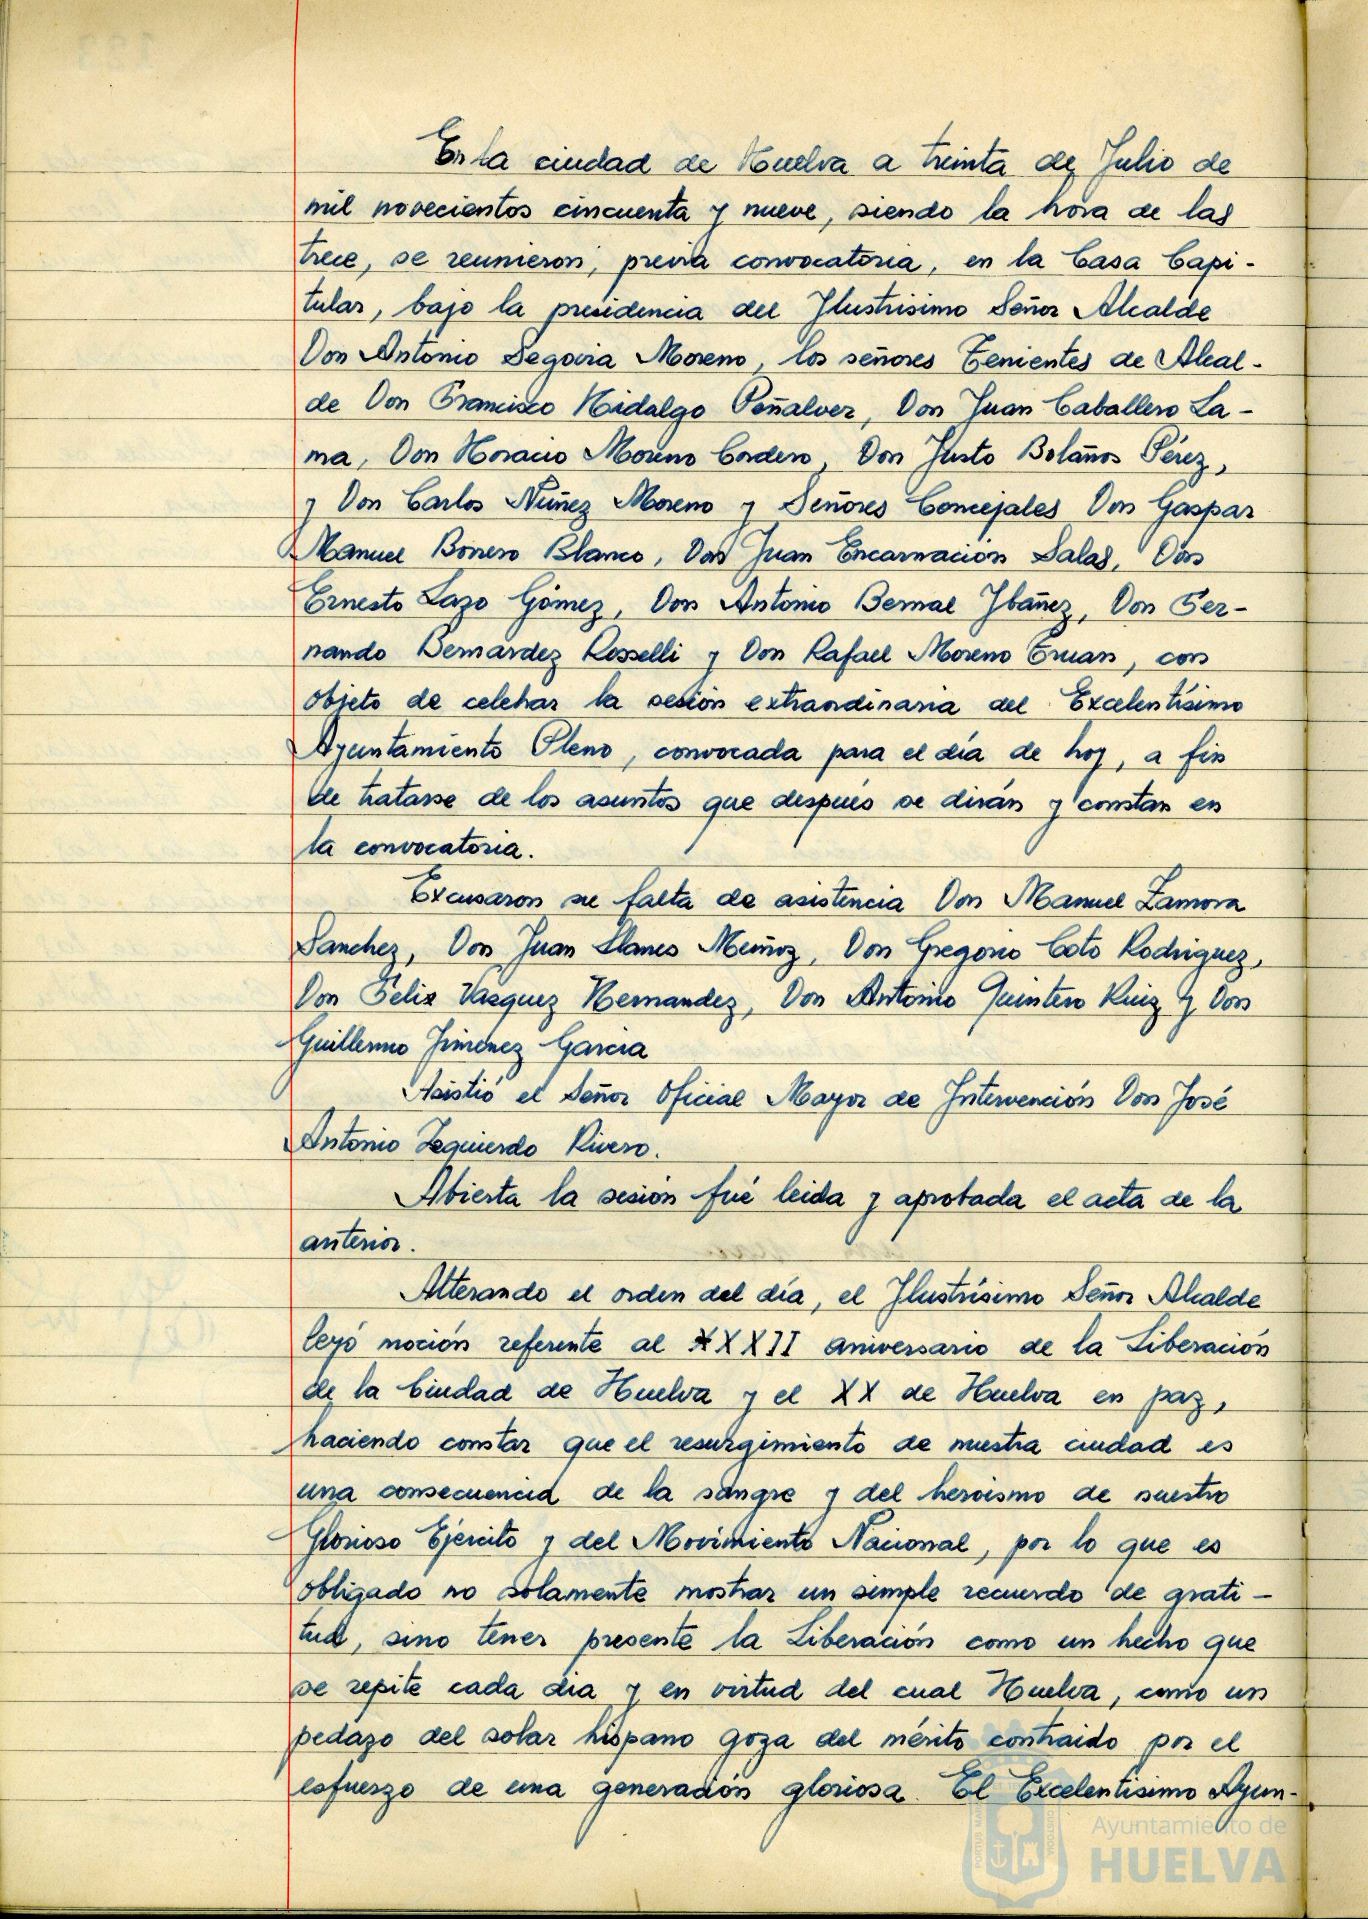 En la ciudad de Huelva a treinta de Julio de
mil novecientos cincuenta y nueve, siendo la hora de las
trece, se reunieron, previa convocatoria, en la Casa Capi-
tular, bajo la presidencia del Ilustrisimo Señor Alcalde
Don Antonio Segovia Moreno, los señores Tenientes de Alcal-
de Don Francisco Hidalgo Peñalver, Don Juan Caballero La-
ma, Don Horacio Moreno Cordero, Don Justo Bolaños Pérez,
y Don Carlos Núñez Moreno y Señores Concejales Don Gaspar
Manuel Borrero Blanco, Don Juan Encarnación Salas, Don
Ernesto Lazo Gómez, Don Antonio Bernal Ybáñez, Don Fer-
nando Bernardez Rosselli y Don Rafael Moreno Eruan, con
objeto de celebrar la sesión extraordinaria del Excelentísimo
Ayuntamiento Pleno, convocada para el día de hoy, a fin
de tratarse de los asuntos que después se dirán y constan en
la convocatoria.
Excusaron su falta de asistencia Don Manuel Zamora
Sanchez, Don Juan Llanes Muñoz, Don Gregorio Coto Rodriguez,
Don Felix Vazquez Hernandez, Don Antonio Quintero Ruiz y Don
Guillermo Jimenez Garcia
Asistió el Señor Oficial Mayor de Intervención Don José
Antonio Izquierdo Rivero.
Abierta la sesión fué leida y aprobada el acta de la
anterior.
Alterando el orden del día, el Ilustrísimo Señor Alcalde
leyó moción referente al XXXII aniversario de la Liberación
de la Ciudad de Huelva y el XX de Huelva en paz,
haciendo constar que el resurgimiento de nuestra ciudad es
una consecuencia de la sangre y del heroismo de nuestro
Glorioso Ejército y del Movimiento Nacional, por lo que es
obligado no solamente mostrar un simple recuerdo de grati-
tud, sino tener presente la Liberación como un hecho que
se repite cada dia y en virtud del cual Huelva, como un
pedazo del solar hispano goza del mérito contraido por el
esfuerzo de una generación gloriosa. El Excelentisimo Ayun-
Ayuntamiento de
HUELVA